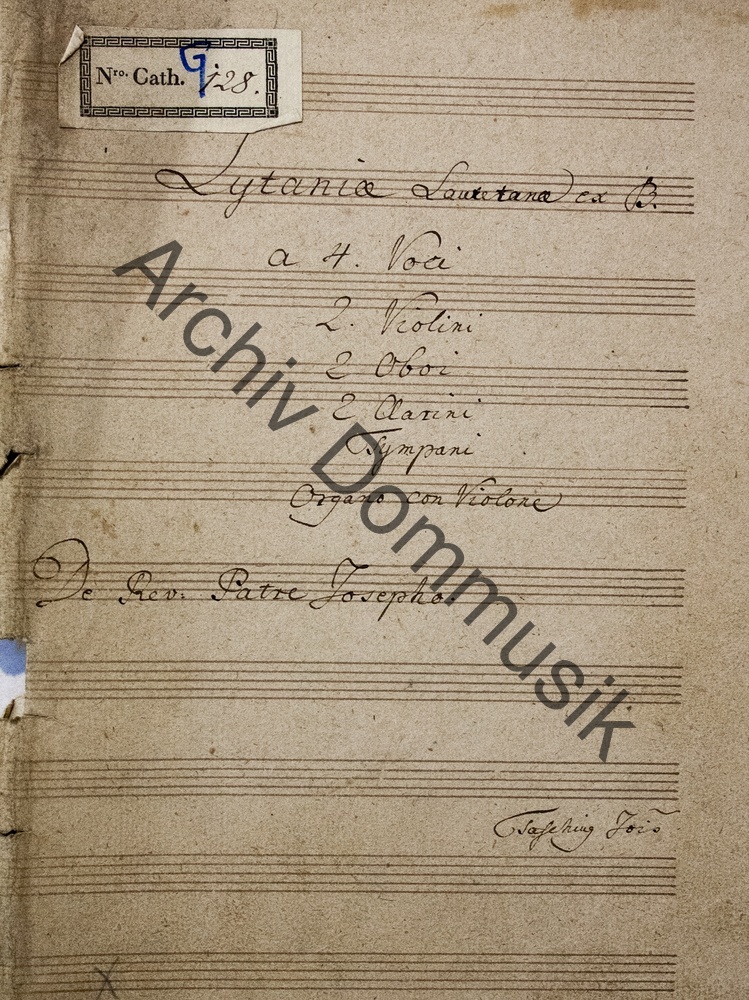 Nro. Cath. G 128.
Lytaniæ Lauretanæ ex B.
a 4. Voci
2. Violini
2 Oboi
2 Clarini
Tympani
Organo con Violone
De Rev: Patre Josepho.
Archiv Dommusik